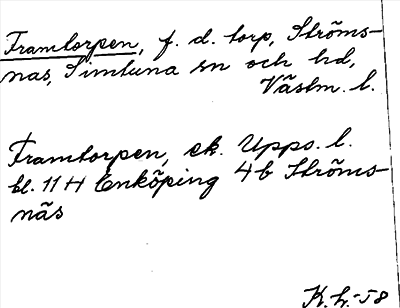 Framtorpen, f. d. torp, Ströms-
näs, Simtuna sn och hd,
Västm. l.
Framtorpen, ek. Upps. l.
bl. 11 H Enköping 4b Ströms-
näs
K. H. -58